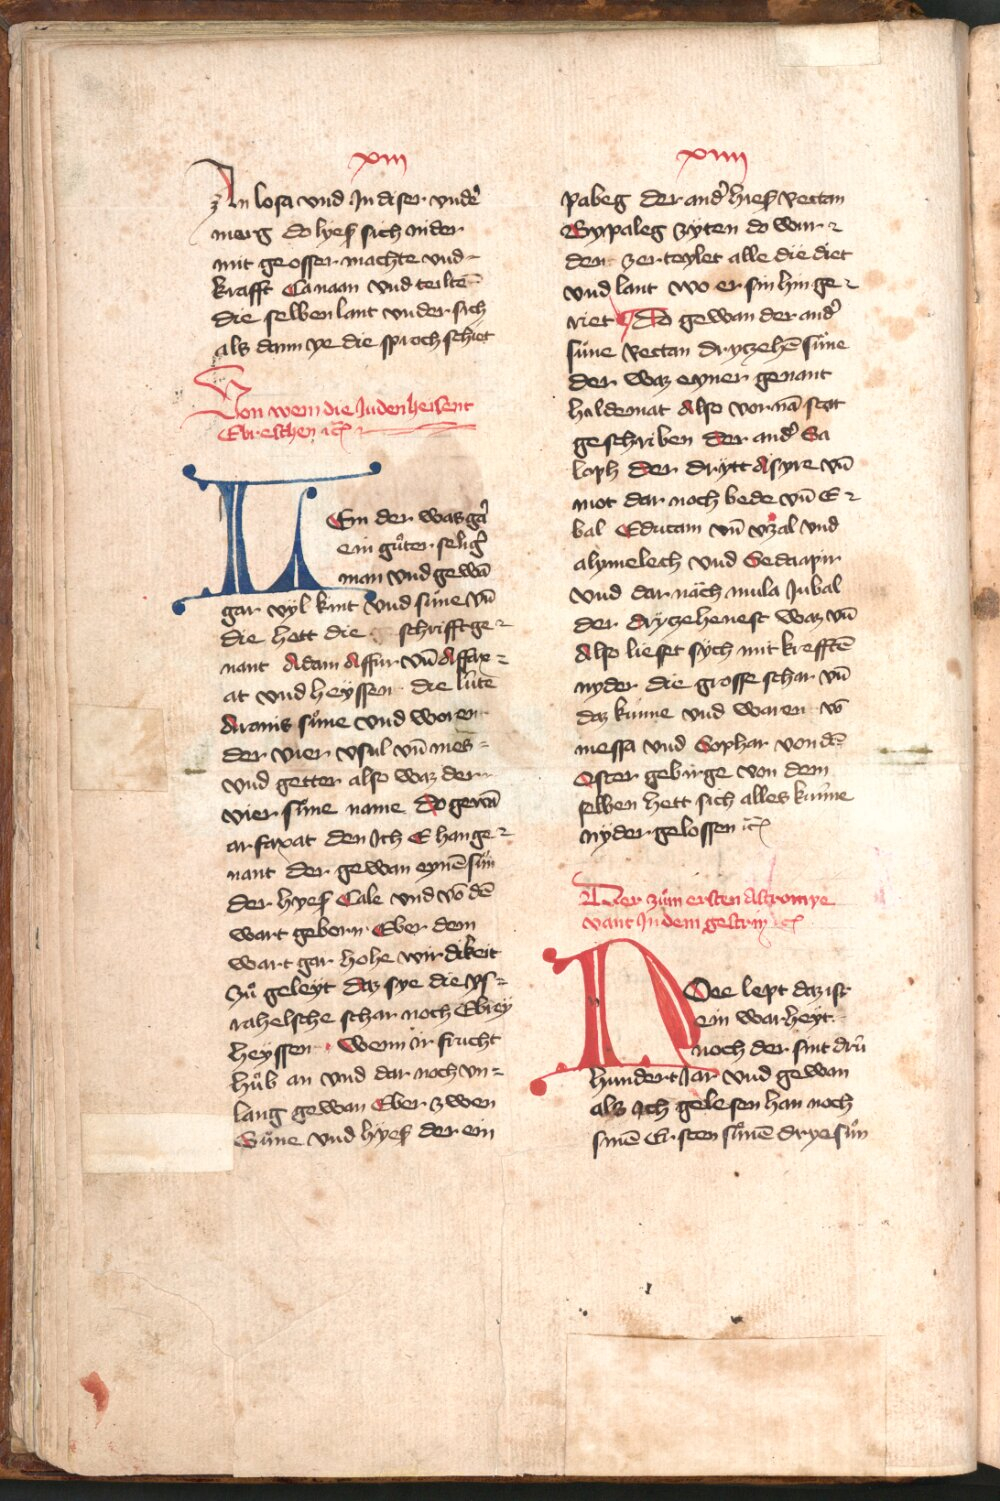 xiij
In losa vnd In diser vnd'
merg do lyeß sich nider
mit grosser machte vnd
krafft Canaan vnd teiltē
die selben lant vnder sich
als dann ye die sproch schiet
Von wem die Juden heisent
Ebreschen ꝛc
LEm der was ga'
ein gůter selig'
man vnd gewā
gar vyl kint vnd süne vn̄
die hett die schrifft ge
nant Adam Assur vn̄ Affax
at vnd heyssen die lüte
Aramis süne vnd woren
der vier vsul vn̄ mes
vnd getter also waz der
vier süne name Do gewā
arfaxat den Ich E han ge
nant der gewan eynē sün
der hyeß Cale vnd vō dē
wart geborn Eber dem
wart gar hohe wirdikeit
Zů geleyt daz sye die ys
rahelsche schar noch Ebrey
heyssen Wenn ir frucht
hůb an vnd dar noch vn
lang gewan Eber zwen
Süne vnd hyeß der ein
xiiij
pabeg der and' hieß Rectan
By paleg zyten do wur
den zerteylet alle die diet
vnd lant wo er sin hin ge
riet Do gewan der and'
süne Rectan dryzehē süne
der waz eyner genant
haldemat Also vor nā stat
geschriben Der and' Sa
loph Der drytt Asyre vn̄
mot dar noch bede vn̄ E
bal Educam vn̄ vzal vnd
alymelech vnd Sedaapir
vnd dar näch mula Jubal
der dryzehenest waz vn̄
Also lieset sych mit krefftē
nyder die grosse schar vn̄
daz künne vnd waren vō
messa vnd Sophar von dē
Oster gebirge von dem
selben hett sich alles künne
nyder gelossen ꝛc
Der zům ersten Astromye
vant In dem gestirn ꝛc
NOee lept daz ist
ein warheyt
noch der sint drü
hundert Jar vnd gewan
als ich gelesen han noch
sinē Ersten sünē drye sün